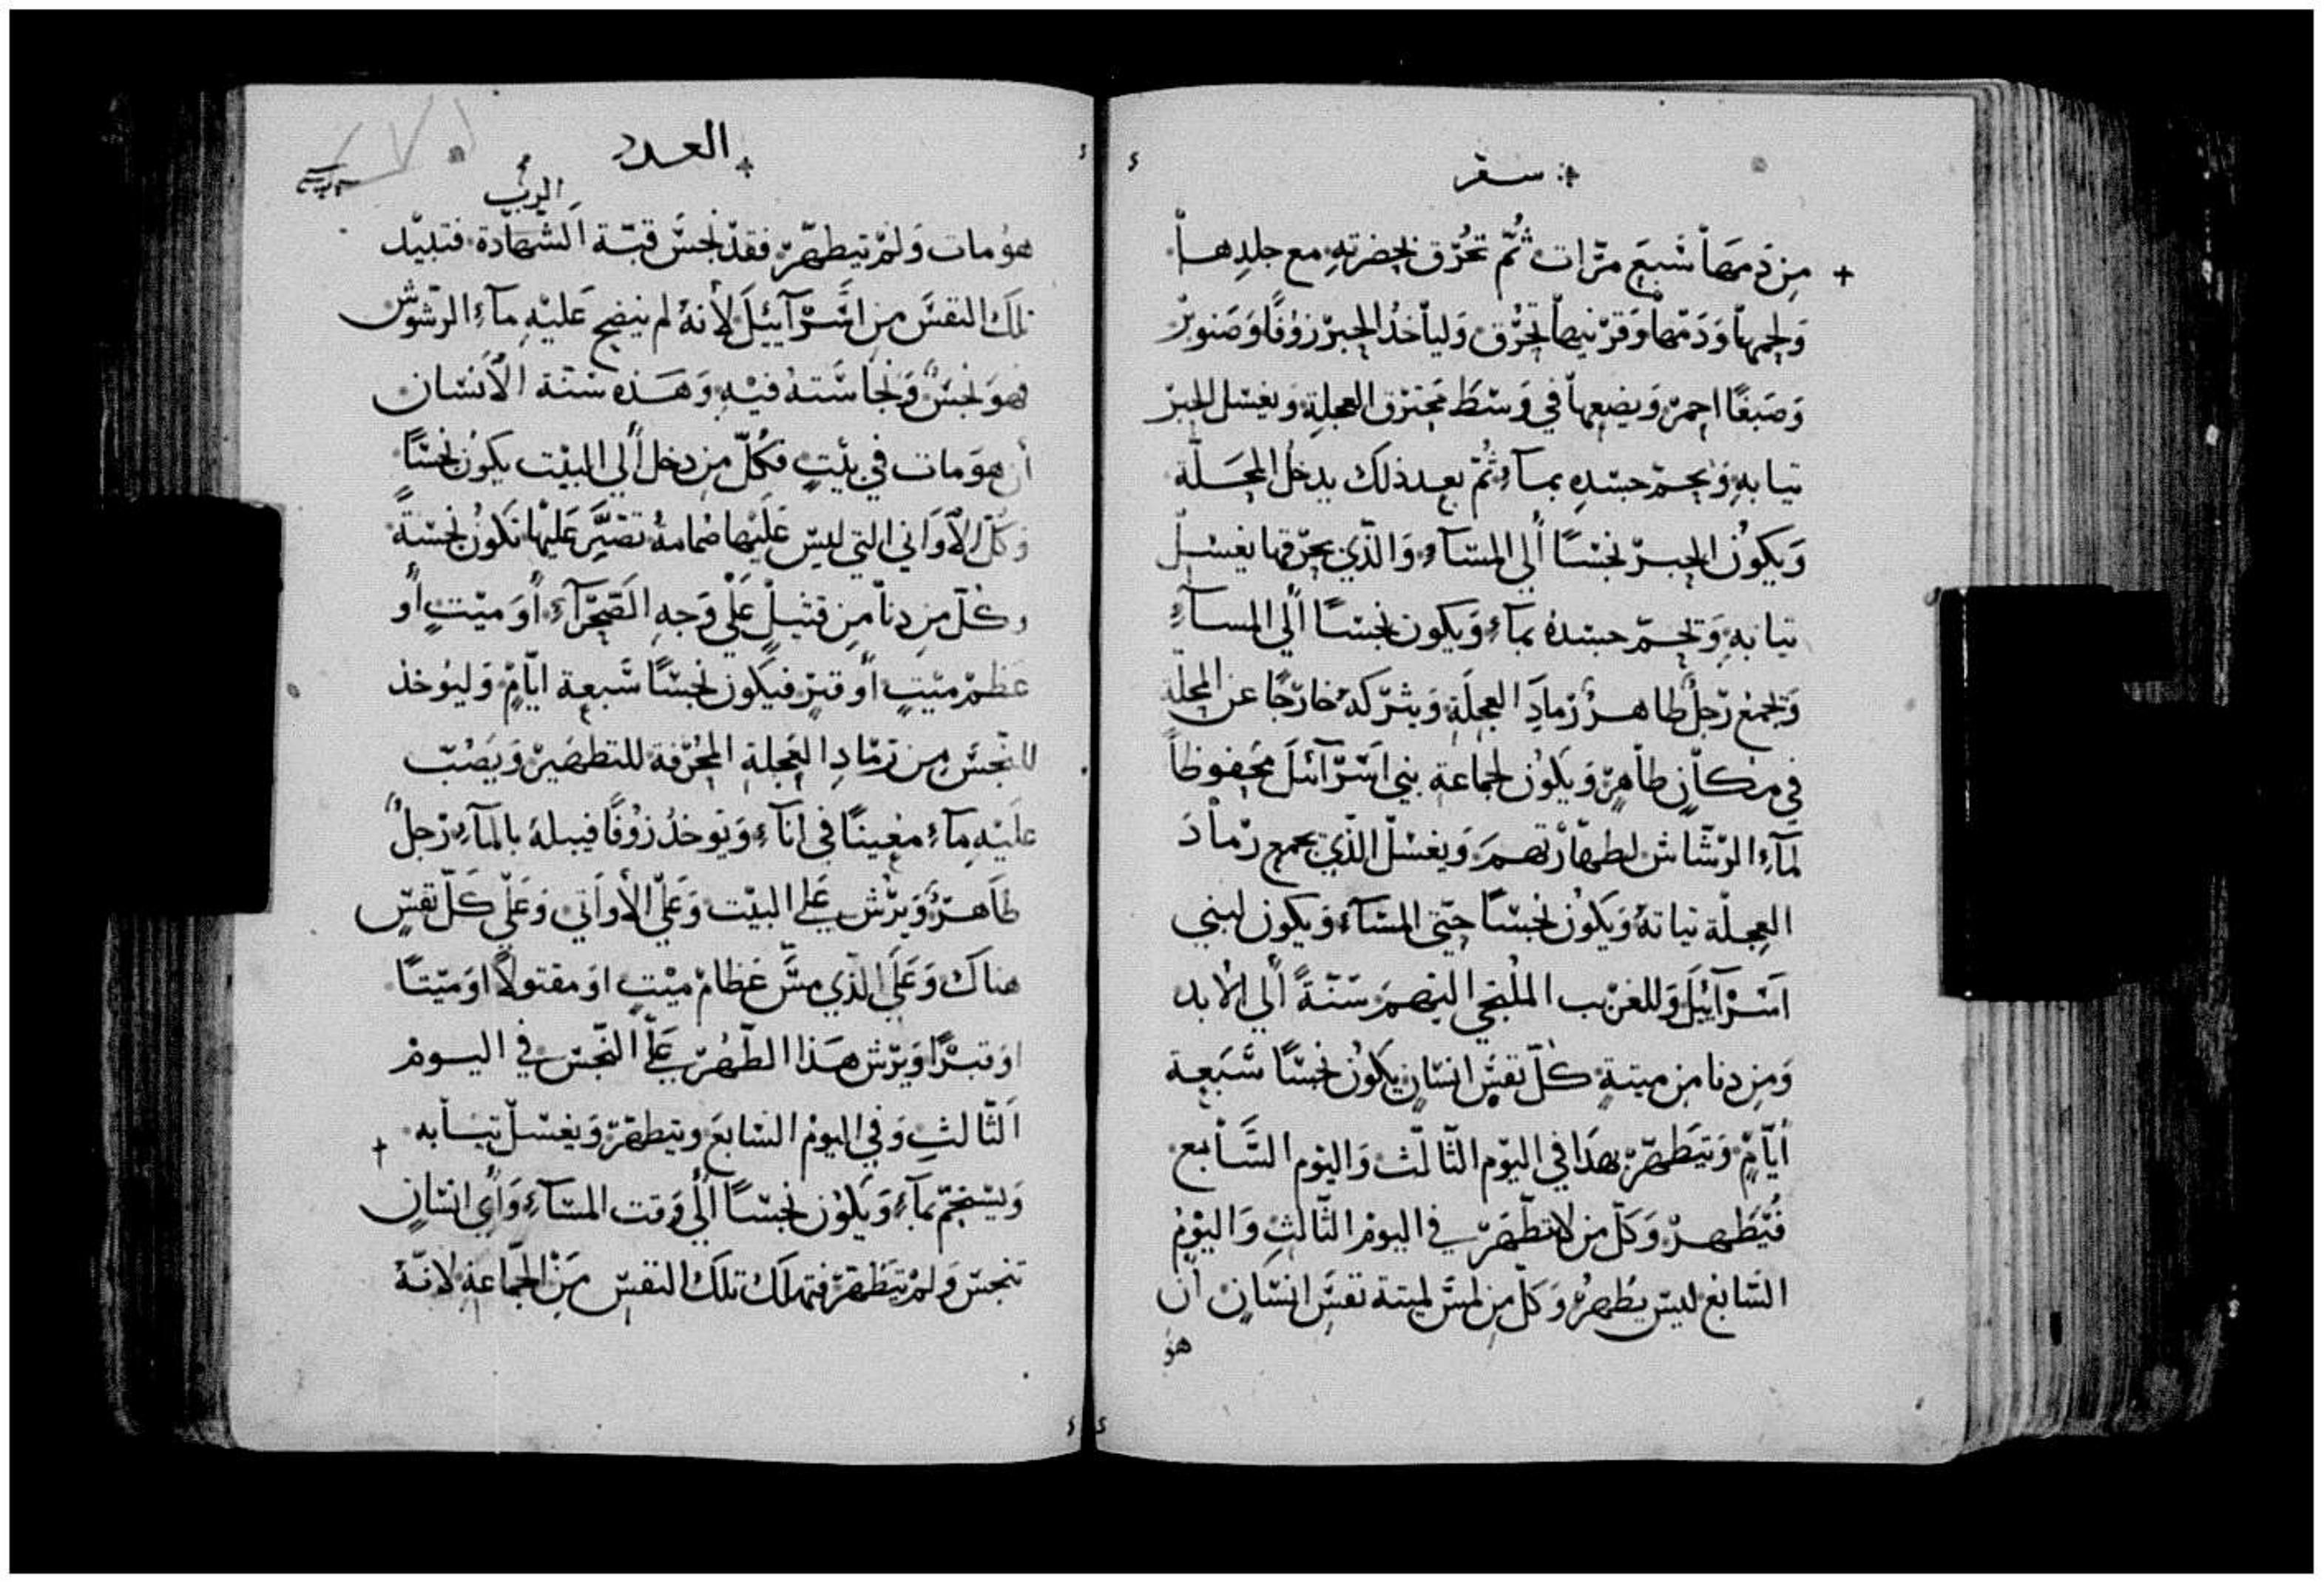 سفر
مِن دَمهَا سَبعَ مرّات ثُمّ تحُرَق بحِضرَتهِ مع جلدِها
وَلحمهَا وَدَمهَا وَفَرثهَا تحُرق وَليأخذُ الحِبرْ زوُفًا وَصَنوبرْ
وَصَبغًا احِمرْ وَيضعِهَا في وَسْطَ محَترَق العِجلةِ وَيغسْل الحبرْ
تيابهِ وَيحمّ جسّدِهِ بمآءٍ ثُمّ بعِد ذلك يدخُل المحِلّة
وَيكوُن الحِبرْ نجسًا أَلي المسَآءِ وَالذّي يحِرّقها يغسْل
تيابهِ وَيحِمّ جسَدهُ بمآءٍ وَيكون نجسًا أَلي المسآءِ
وَيجمعْ رَجلٌ طاهرٌ رَمادِ العِجلَةِ وَيترْكهُ خارَجًا عن المحلّة
في مكانٍ طاهرٍ وَيكَوُن لجماعَةِ بني اسَرآئلَ محِفوظًا
لمآءِ الرّشاش لطهّارَتهمَ وَيغسْل الذّي يجمع رَمادَ
العِجلّة تيابهُ وَيكوُن نجسًا حتّي المسَآءِ وَيكون لبني
اسَرْآئيلَ وَللغرْيب الملتجي اليهمَ سَنّةً ألي الأبد
وَمن دنا من ميتةٍ كلّ نفسِ انسَانٍ يكوُن نجسًا سَبَعة
أيّامٍ وَيتَطهرّ بهذَا في اليوَم الثّالثْ وَاليوَم السَّابع
فيُتطَهرْ وَكلّ من لا يتطَهّرَ في اليومْ الثّالثِ وَاليوْم
السَّابعْ ليس يَطهرُ وَكلّ مِن لمسَ لميتة نفسِ انسَانٍ ان
هوُ
العدد
الربّ
هوُ مات وَلمْ يتطهّرْ فقدْ نجسَّ قبّة الشهادَة فتبيْد
تلكَ النفسَ من اسَرْآئيلَ لأنهُ لم ينضح عَليهِ مآءِ الرّشوش
فهوَ نجسٌ وَنجاسَتهُ فيْهِ وَهَذه سنّة الأنسَان
أن هوَ مات في بيْتٍ فكُلّ من دخل أَلي البيْت يكوُن نجسًا
وَكلّ الأوَاني التي ليسْ عَليْهَا ضمامةُ تصَيَّر عَليْها تكوُن نجسْةً
وكُلّ من دنا من قتيْلٍ عَلَي وَجهِ الصَحِرآءِ أوَ ميْتٍ أو
عَظمْ ميْتٍ أوَ قبرٍ فيكَون نجسًا سَّبعة ايّامٍ وَليوُخذ
للنجسَ من رَمّادِ العَجلةِ المحُرّقة للتطهيَرْ وَيَصُبّ
علَيْهِ مآءِ معينًا في انآءٍ وَيوُخذُ زوُفًا فيبلهُ بالمآءِ رَجلٌ
طَاهرٌ وَيرُشّ عَلي البيْت وَعَلّي الأوَاني وَعَلّي كَلّ نفسٍ
هناكَ وَعَلَي الذّي مسَّ عَظامْ ميْتٍ اوَ مقتولاً اوَ ميْتًا
اوَ قبرًا وَيرّش هَذا الطّهُرْ عَلّي النّجسْ في اليومْ
الثّالثِ وَفي اليومْ السّابعَ ويتطهّرْ وَيغسْل تيابه
وَيسْتحِمّ بمآءٍ وَيكَوُن نجسًا أَلي وَقت المسَآءِ وَأيّ انسَانٍ
تنجسْ وَلمْ يتَطهَّرْ فتهلكَ تلكَ النفسْ مَن الجمّاعَةِ لانّهُ